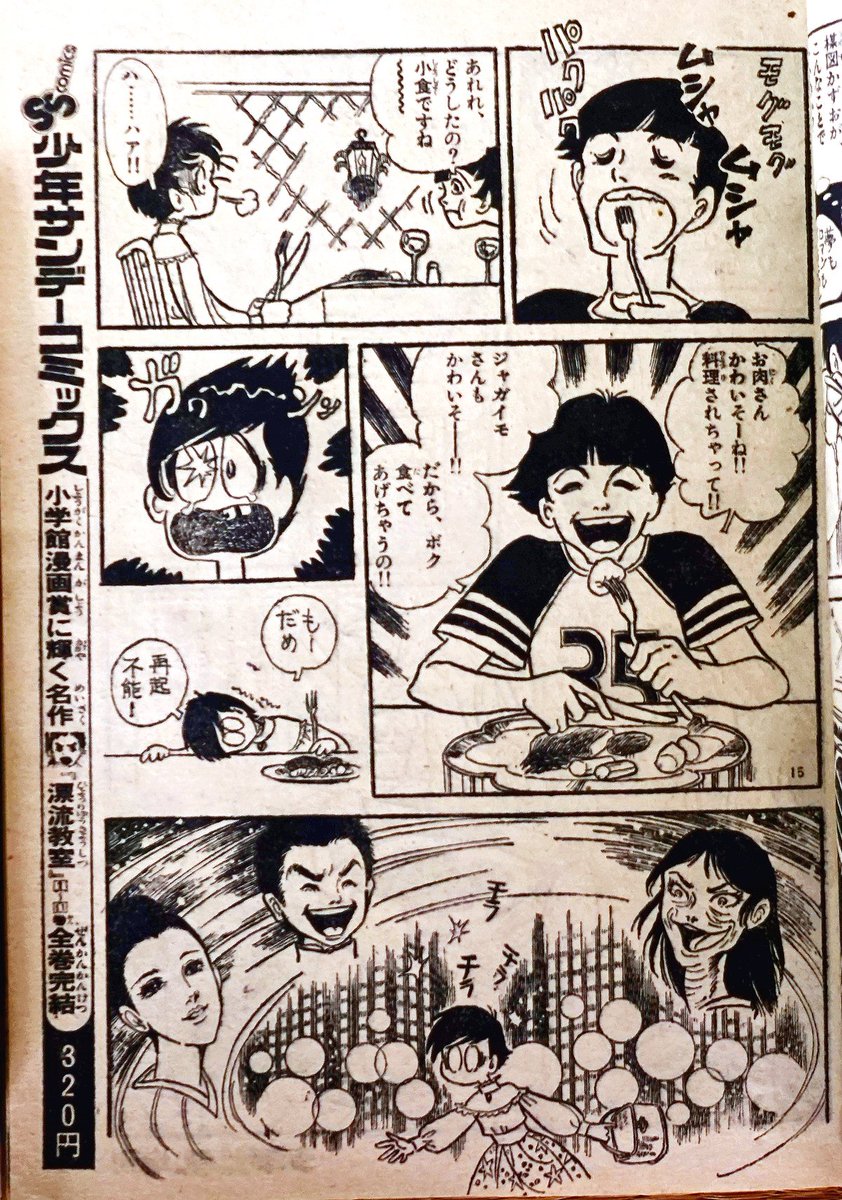 モグモグ
ムシャ
ムシャ
パク
パク
あれれ、
どうしたの?
小食ですね
〜〜〜〜〜
ハ……ハァ!!
お肉さん
かわいそーね!!
料理されちゃって!!
ジャガイモ
さんも
かわいそーー!!
だから、ボク
食べて
あげちゃうの!!
ガ
もー
だめ
再起
不能!
15
チラ
チラ
SS comics
少年サンデーコミックス
小学館漫画賞に輝く名作
『漂流教室』
全巻完結
320円
楳図かずおが
こんなことで
夢も